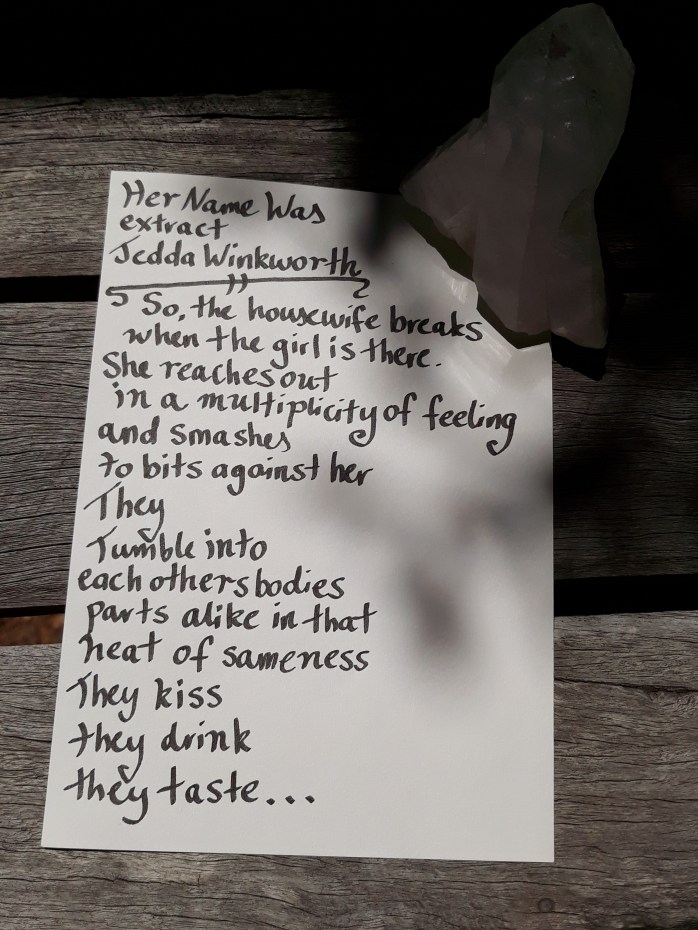 Her Name Was
extract
Jedda Winkworth
So, the housewife breaks
when the girl is there.
She reaches out
in a multiplicity of feeling
and smashes
to bits against her
They
Tumble into
each others bodies
parts alike in that
heat of sameness
They kiss
they drink
they taste...